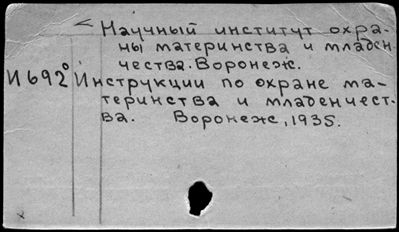 Научный институт охра-
ны материнства и младен-
чества. Воронеж.
И692⁰ Инструкции по охране ма-
теринства и младенчест-
ва. Воронеж, 1935.